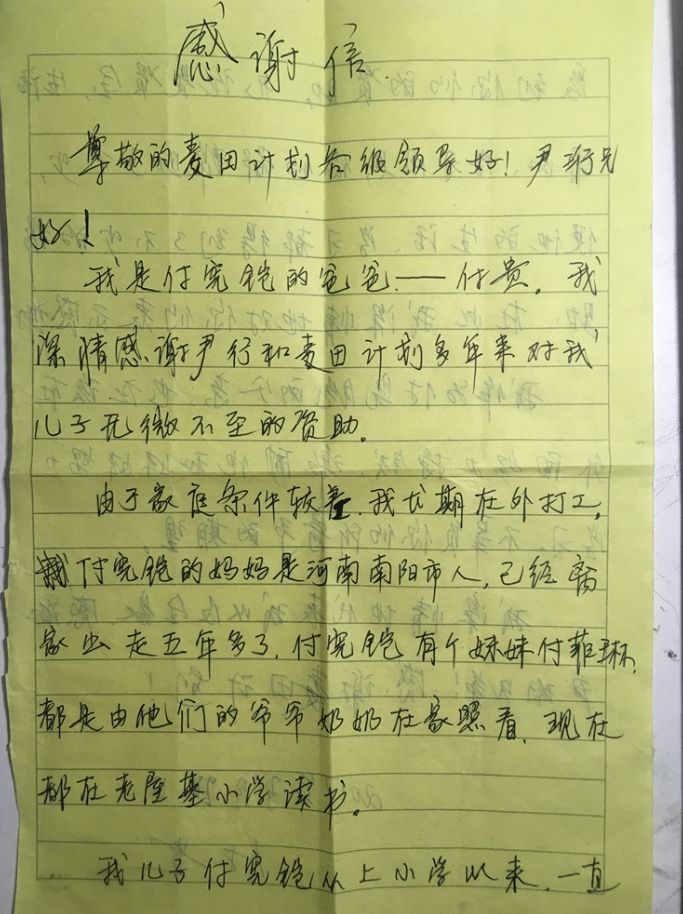 感谢信
尊敬的麦田计划各级领导好！尹珩兄
好！
我是付宪铠的爸爸——付贵，我
深情感谢尹行和麦田计划多年来对我
儿子无微不至的资助。
由于家庭条件较差，我长期在外打工。
付宪铠的妈妈是河南南阳市人，已经离
家出走五年多了，付宪铠有个妹妹付菲琳，
都是由他们的爷爷奶奶在家照看，现在
都在老屋基小学读书。
我儿子付宪铠从上小学以来，一直